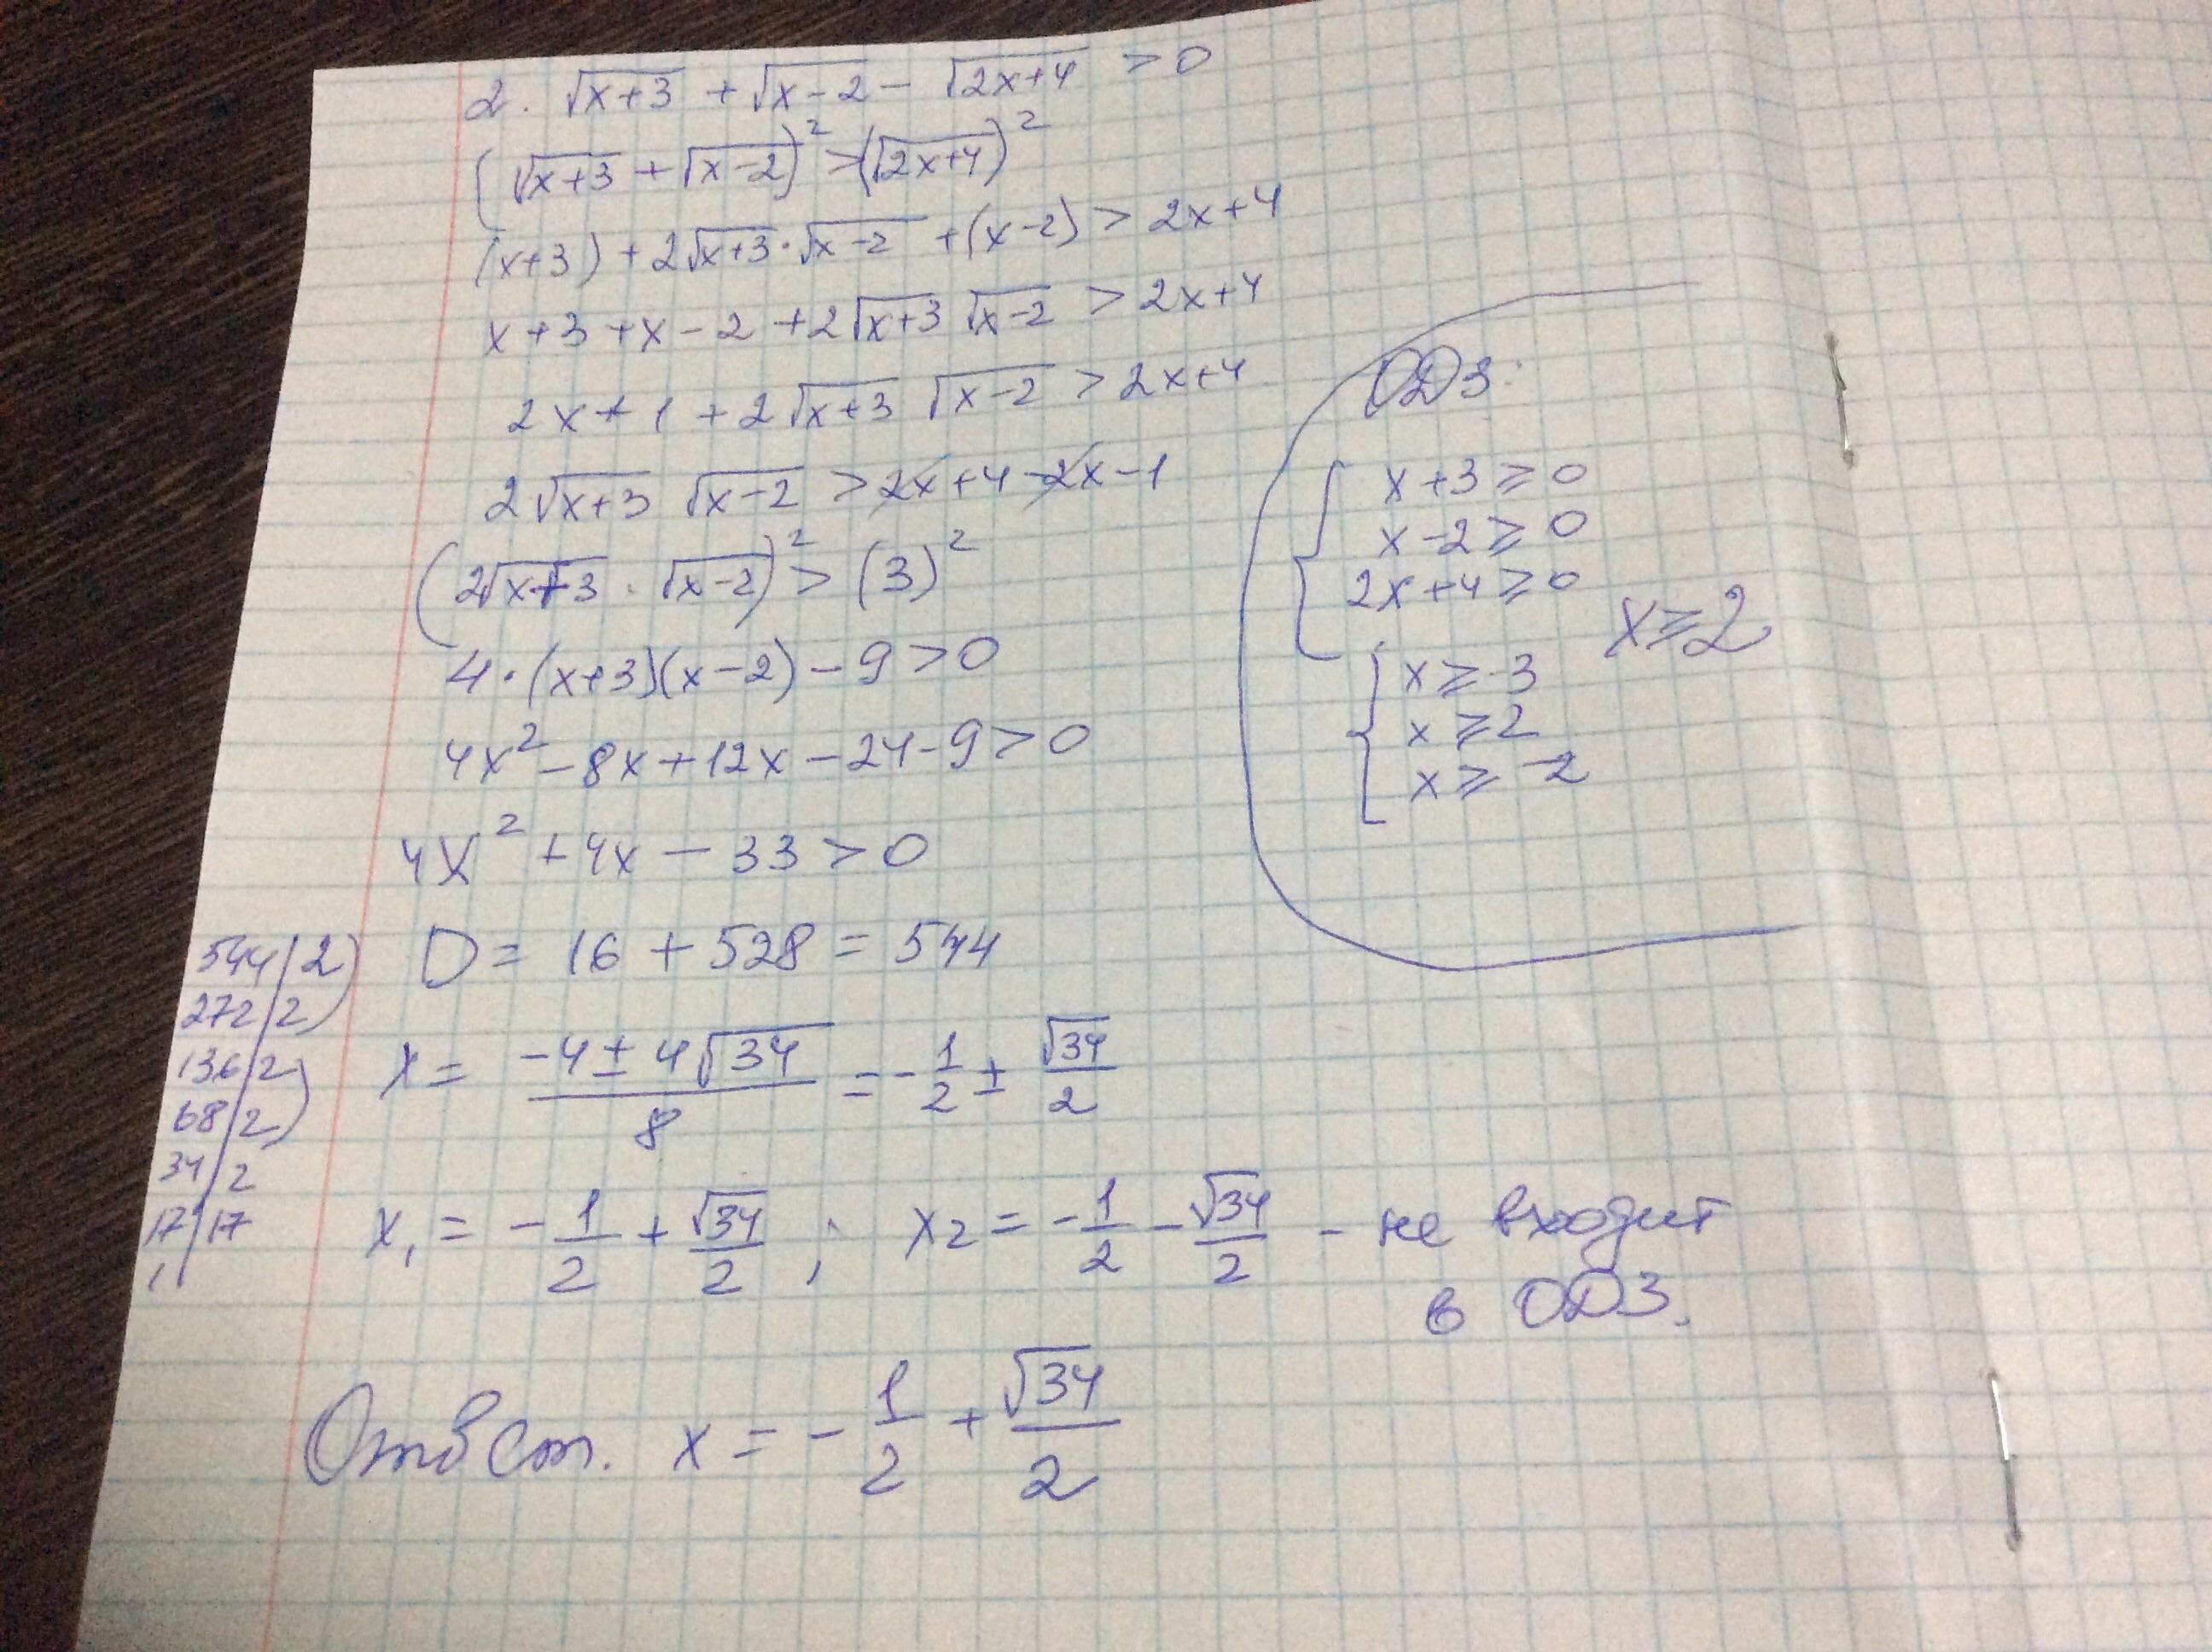 2. √(x+3) + √(x-2) - √(2x+4) > 0
(√(x+3) + √(x-2))² > (√(2x+4))²
(x+3) + 2√(x+3)·√(x-2) + (x-2) > 2x+4
x+3+x-2+2√(x+3) √(x-2) > 2x+4
2x+1+2√(x+3) √(x-2) > 2x+4
2√(x+3) √(x-2) > 2x+4-2x-1
(2√(x+3) · √(x-2))² > (3)²
4·(x+3)(x-2)-9>0
4x²-8x+12x-24-9>0
4x²+4x-33>0
D = 16 + 528 = 544
x = (-4 ± 4√34)/8 = -1/2 ± √34/2
x₁ = -1/2 + √34/2 ; x₂ = -1/2 - √34/2 - не входит
в ОДЗ.
Ответ. x = -1/2 + √34/2
ОДЗ:
{ x+3 ≥ 0
x-2 ≥ 0
2x+4 ≥ 0
x ≥ 2
{ x ≥ -3
x ≥ 2
x ≥ -2
544|2)
272|2)
136|2)
68|2)
34|2
17|17
1|